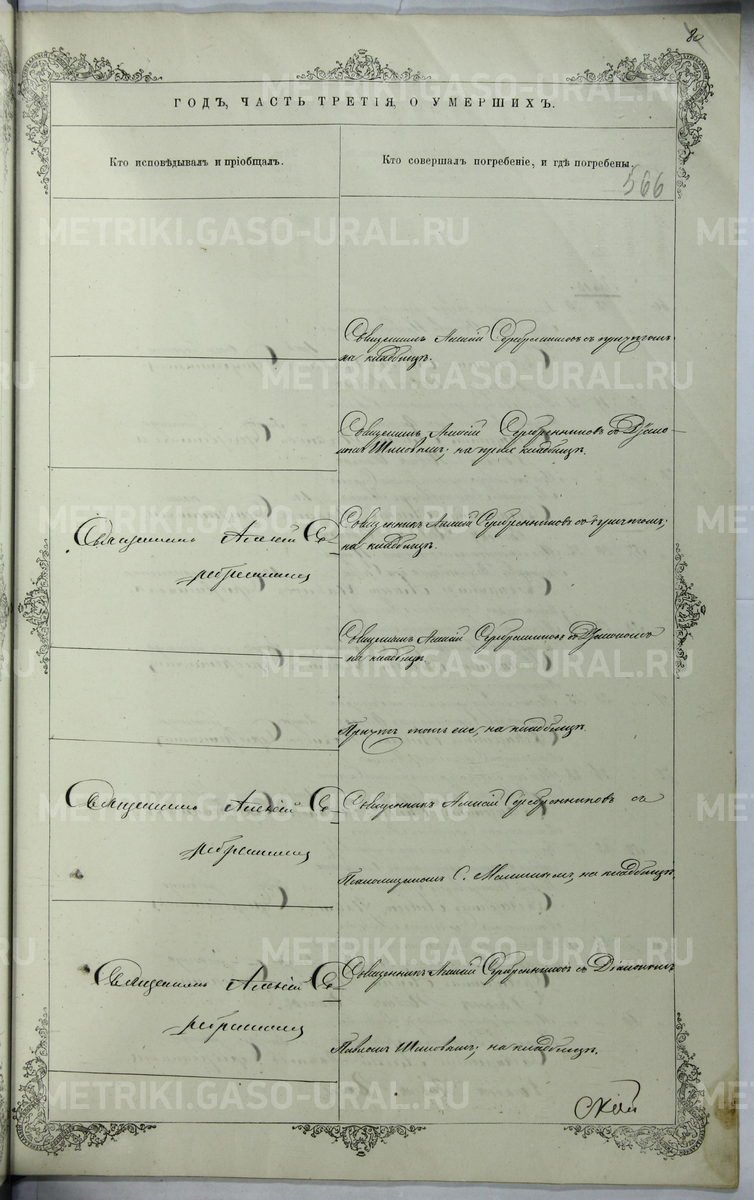 80
ГОДЪ, ЧАСТЬ ТРЕТІЯ, О УМЕРШИХЪ.
Кто исповѣдывалъ и пріобщалъ.
Кто совершалъ погребеніе, и гдѣ погребены.
566
METRIKI.GASO-URAL.RU
Священникъ Алексій Серебренниковъ съ причтомъ
на кладбищѣ.
Священникъ Алексій Серебренниковъ съ Дьяко-
номъ Шиловымъ; на кладбищѣ.
Священникъ Алексій Се-
ребренниковъ
Священникъ Алексій Серебренниковъ съ причтомъ;
на кладбищѣ.
Священникъ Алексій Серебренниковъ съ Дьякономъ
на кладбищѣ.
Причтъ тотъ же, на кладбищѣ.
Священникъ Алексій Се-
ребренниковъ
Священникъ Алексій Серебренниковъ съ
С. на кладбищѣ.
Священникъ Алексій Се-
ребренниковъ
Священникъ Алексій Серебренниковъ съ Діакономъ
Павломъ Шиловымъ; на кладбищѣ.